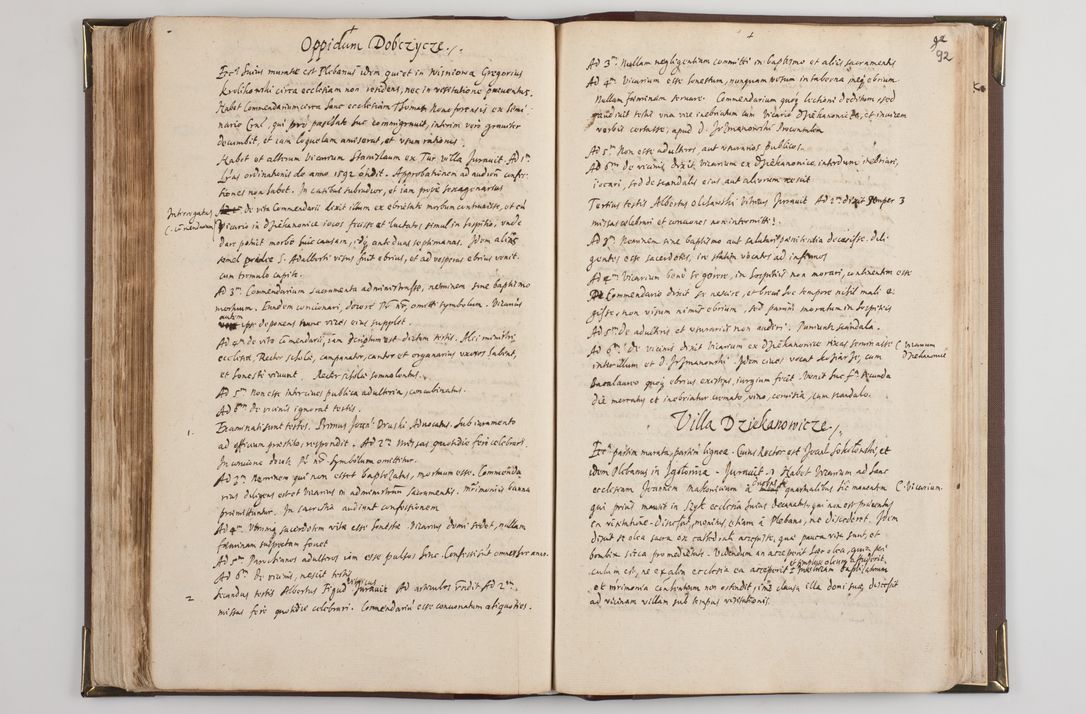 Oppidum Dobczycze
Eccl. huius murata est Plebanus idem qui et in Wisniowa Gregorius
Krolikowski circa ecclesiam non residens, nec in visitatione praeuentus.
Habet Commendarium circa hanc ecclesiam Thomam
decumbit, et iam loquelam amiserat, et usum rationis
Habet et alterum Vicarium Stanislaum ex Tur villa Jurauit. Ad 1m
Lras ordinationis de anno 1592 ondit. Approbationem ad audien confes:
tiones non habet. In casibus subrudior, et iam prope sexagenarius
Interrogatus
C. comendarium
de vita Commendarii dixit illum ex ebrietate morbum contraxisse, et cu
Vicario in Dziekanowice iocos fecisse et luctatus simul in hospitio, unde
dare potuit morbo huic causam, idq ante duas septimanas. Idem alias
semel pridie S. Adalberti visus fuit ebrius, et ad vesperas ebrius venit
cum tremulo capite.
Ad 3m Commendarium sacramenta administrasse, neminem sine baptismo
mortuum. Eundem concionari, docere Pr nr, omitti symbolum. Vicarius
autem
deponens nunc vices eius supplet.
Ad 4m de vita Comendarii, iam scriptum est dictum testis. Alii ministri
ecclesiae, Rector scholae, campanator, cantor et organarius uxores habent,
et honesti vivunt. Rector scholae somnolentus.
Ad 5m Non esse inter cives publica adulteria, concubinatus.
Ad 6m De vicinis ignorat testis.
1. Examinati sunt testes. Primus Joan Druski Advocatus. Sub iuramento
ad officium praestito, respondit. Ad 2m Missas quotidie fere celebrari.
In concione docet Pr nr symbolum omittitur.
Ad 3m Neminem qui non esset baptizatus, mortuum esse. Commenda
rius diligens est et Vicarius in administratem Sacramentis. Mrimoniis banna
praemittuntur. In sacristia audiunt confessionem
Ad 4m Utrumq sacerdotem vitae esse honestae. Vicarius domi sedet, nullam
faeminam suspectam fovet
Ad 5m Parochianos adulteros non esse publicos hinc. Confessi sunt omnes hoc anno.
Ad 6m De vicinis, nescit testis
2 Secundus testis Albertus Figud Vitricus Jurauit Ad articulos rndit Ad 2m
missas fere quotidie celebrari. Comendarii esse concionatum aliquoties.
92
92
Ad 3m Nullam negligentiam committi in baptismo et aliis sacramentis
Ad 4m Vicarium esse honestum, nunquam visum in taberna neq ebrium
Nullam faeminam servare. Commendarium quoq lectioni deditum, sed
audivit testis una vice inebriatum cum Vicario Dziekanowice, et invicem
verbis certasse, apud D. Jrzmanowski
Ad 5m Non esse adulteros, aut usurarios publicos.
Ad 6m De vicinis dixit Vicarium ex Dziekanowice, interdum inebriari,
iocari, sed de scandalis eius aut aliorum nescit
Tertius testis Albertus Olszawski Vitricus Jurauit. Ad 2m dixit semper 3
missas celebrari et conciones non intermitti.
Ad 3m Neminem sine baptismo aut salutari paenitentia decessisse. Dili
gentes esse sacerdotes, in statim vocatos ad infirmos
Ad 4m Vicarium bene se gerere, in hospitiis non morari, continentem esse
De Commendario dixit se nescire, et brevi hoc tempore nihil mali e:
gisse, non visum nimis ebrium, sed parum moratum in hospitiis
Ad 5m De adulteris et usurariis non audivi. scandala.
Ad 6m De vicinis dixit Vicarium ex Dziekanowice rixas seminasse
C Vicarium
Dziekanowic
inter illum et D Jrzmanowski Idem cives vocat
Bacalaureo quoq ebrius existens, iurgium fecit. Venit huc fa secunda
die mercatus et inebriatur cremato, vino, cervisia, cum scandalo.
Villa Dziekanowicze
Eccl partim murata, partim lignea. Cuius Rector est Joael Sokolowski, et
idem Plebanus in Igolomia. Jurauit. Habet Vicarium ad hanc
ecclesiam Joannem Makowium à Quadragesimalibus hic manentem
C. Vicarium.
qui prius mansit in Szyk ecclesia huius decanatus, qui non est praeventus
in visitatione discessit, monitus etiam à Plebano, ne discederet. Idem
dixit se olea sacra ex cathedrali accepisse, quae pauca visa sunt, et
bombice sicca pro medietate. Videndum an acceperit haec olea, quia peri
culum est, ne ex alia ecclesia ea acceperit
mrimonia contractum non ostendit, imo clausa illa domi suae, discessit
ad vicinam villam sub tempus visitationis.